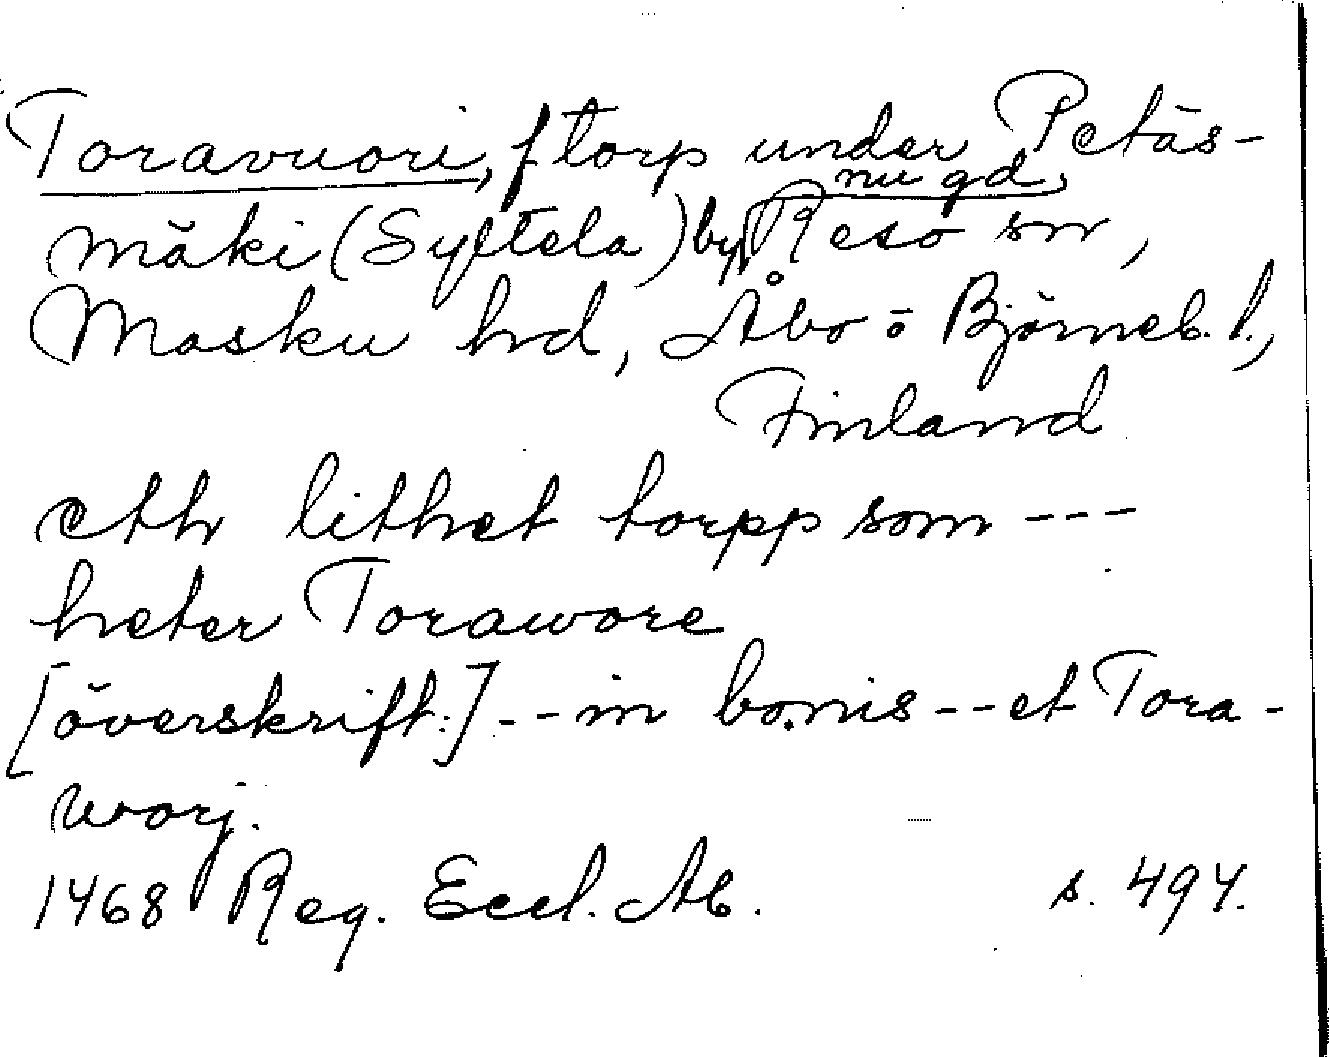 Toravuori, f torp under Petäs-
nu gd,
mäki (Syltela) by Reso sn,
Masku hd, Åbo o Björneb. l.,
Finland
eth lithet torpp som ---
heter Torawore
[överskrift:] -- in bonis -- et Tora-
worj.
1468 Reg. Eccl. Ab. s. 494.